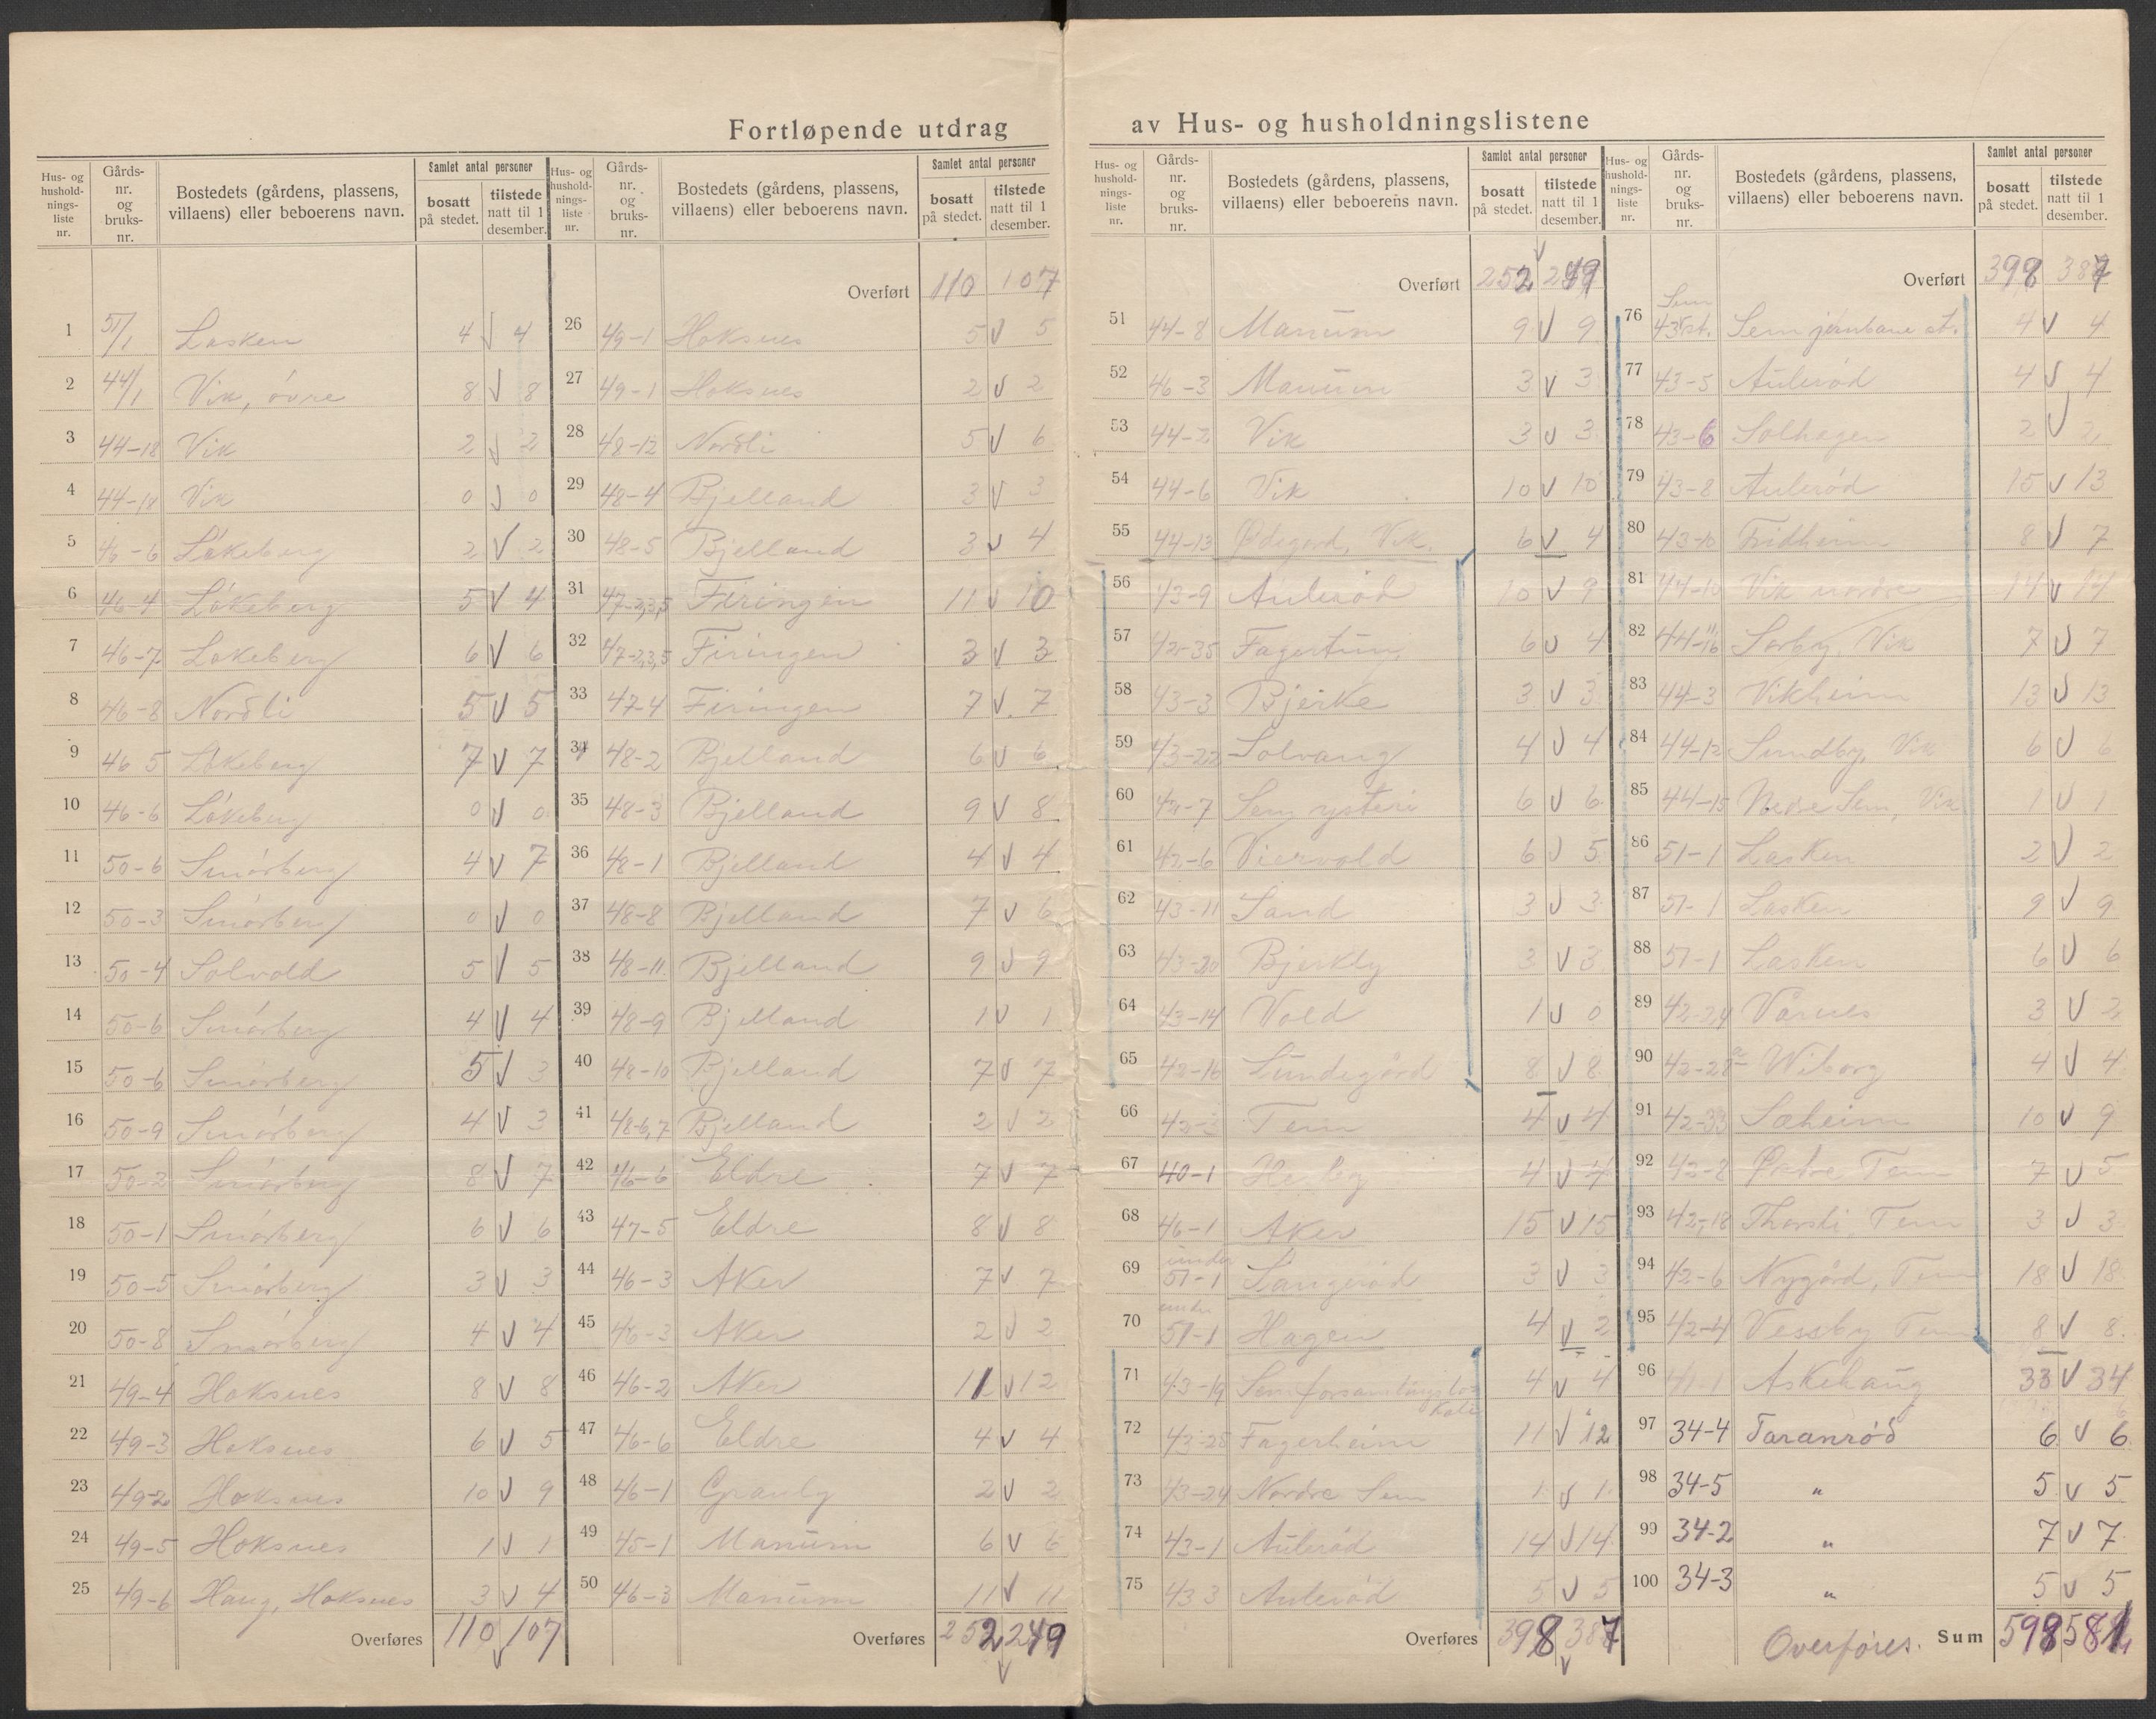 Fortløpende utdrag av Hus- og husholdningslistene
Hus- og husholdnings-liste nr. | Gårds-nr. og bruks-nr. | Bostedets (gårdens, plassens, villaens) eller beboerens navn. | Samlet antal personer | bosatt på stedet. | tilstede natt til 1 desember.
1 51/1 Lasken 4 √ 4
2 44/1 Vik, óvre 8 √ 8
3 44-18 Vik 2 √ 2
4 44-18 Vik 0 √ 0
5 46-6 Lókeberg 2 √ 2
6 46-4 Lókeberg 5 √ 4
7 46-7 Lokeberg 6 √ 6
8 46-8 Nordli 5 √ 5
9 46 5 Lókeberg 7 √ 7
10 46-6 Lókeberg 0 √ 0
11 50-6 Smórberg 4 √ 7
12 50-3 Smórberg 0 √ 0
13 50-4 Solvold 5 √ 5
14 50-6 Smórberg 4 √ 4
15 50-6 Smórberg 5 √ 3
16 50-9 Smórberg 4 √ 3
17 50-2 Smórberg 8 √ 7
18 50-1 Smórberg 6 √ 6
19 50-5 Smórberg 3 √ 3
20 50-8 Smórberg 4 √ 4
21 49-4 Hoksnes 8 √ 8
22 49-3 Hoksnes 6 √ 5
23 49-2 Hoksnes 10 √ 9
24 49-5 Hoksnes 1 √ 1
25 49-6 Haug, Hoksnes 3 √ 4
Overføres 110 107
Hus- og husholdnings-liste nr. | Gårds-nr. og bruks-nr. | Bostedets (gårdens, plassens, villaens) eller beboerens navn. | Samlet antal personer | bosatt på stedet. | tilstede natt til 1 desember.
Overført 110 107
26 49-1 Hoksnes 5 √ 5
27 49-1 Hoksnes 2 √ 2
28 48-12 Nordli 5 √ 6
29 48-4 Bjelland 3 √ 3
30 48-5 Bjelland 3 √ 4
31 47-2,3,5 Firingen 11 √ 10
32 47-2,3,5 Firingen 3 √ 3
33 47-4 Firingen 7 √ 7
34 48-2 Bjelland 6 √ 6
35 48-3 Bjelland 9 √ 8
36 48-1 Bjelland 4 √ 4
37 48-8 Bjelland 7 √ 6
38 48-11 Bjelland 9 √ 9
39 48-9 Bjelland 1 √ 1
40 48-10 Bjelland 7 √ 7
41 48-6,7 Bjelland 2 √ 2
42 46-6 Eldre 7 √ 7
43 47-5 Eldre 8 √ 8
44 46-3 Aker 7 √ 7
45 46-3 Aker 2 √ 2
46 46-2 Aker 11 √ 12
47 46-6 Eldre 4 √ 4
48 46-1 Granly 2 √ 2
49 45-1 Manum 6 √ 6
50 46-3 Manum 11 √ 11
Overføres 252 249
Hus- og husholdnings-liste nr. | Gårds-nr. og bruks-nr. | Bostedets (gårdens, plassens, villaens) eller beboerens navn. | Samlet antal personer | bosatt på stedet. | tilstede natt til 1 desember.
Overført 252 249
51 44-8 Manum 9 √ 9
52 46-3 Manum 3 √ 3
53 44-2 Vik 3 √ 3
54 44-6 Vik 10 √ 10
55 44-13 Ødegard, Vik. 6 √ 4
56 43-9 Auleród 10 √ 9
57 42-35 Fagertun 6 √ 4
58 43-3 Bjerke 3 √ 3
59 43-22 Solvang 4 √ 4
60 42-7 Sem ysteri 6 √ 6
61 42-6 Viervold 6 √ 5
62 43-11 Sand 3 √ 3
63 43-20 Bjerkly 3 √ 3
64 43-14 Vold 1 √ 0
65 42-16 Lundegård 8 √ 8
66 42-3 Tem 4 √ 4
67 40-1 Hesby 4 √ 4
68 46-1 Aker 15 √ 15
69 under 51-1 Langeród 3 √ 3
70 under 51-1 Hagen 4 √ 2
71 43-19 Sem forsamlingslokale 4 √ 4
72 43-28 Fagerheim 11 √ 12
73 43-24 Nordre Sem 1 √ 1
74 43-1 Auleród 14 √ 14
75 43 3 Auleród 5 √ 5
Overføres 398 387
Hus- og husholdnings-liste nr. | Gårds-nr. og bruks-nr. | Bostedets (gårdens, plassens, villaens) eller beboerens navn. | Samlet antal personer | bosatt på stedet. | tilstede natt til 1 desember.
Overført 398 387
76 Sem st. Sem jernbane st. 4 √ 4
77 43-5 Auleród 4 √ 4
78 43-6 Solhagen 2 √ 2
79 43-8 Auleród 15 √ 13
80 43-10 Fridheim 8 √ 7
81 44-10 Vik nordre 14 √ 14
82 44-11,16 Sorby, Vik 7 √ 7
83 44-3 Vikheim 13 √ 13
84 44-12 Sundby, Vik 6 √ 6
85 44-15 Nedre Sem, Vik 1 √ 1
86 51-1 Lasken 2 √ 2
87 51-1 Lasken 9 √ 9
88 51-1 Lasken 6 √ 6
89 42-24 Vårnes 3 √ 2
90 42-28 Wiborg 4 √ 4
91 42-33 Sæheim 10 √ 9
92 42-2 Østre Tem 7 √ 5
93 42-18 Thorsli, Tem 3 √ 3
94 42-6 Nygård, Tem 18 √ 18
95 42-4 Vessby Tem 8 √ 8
96 41-1 Askehaug 33 √ 34
97 34-4 Taranród 6 √ 6
98 34-5 " 5 √ 5
99 34-2 " 7 √ 7
100 34-3 " 5 √ 5
Overføres. Sum 598 581